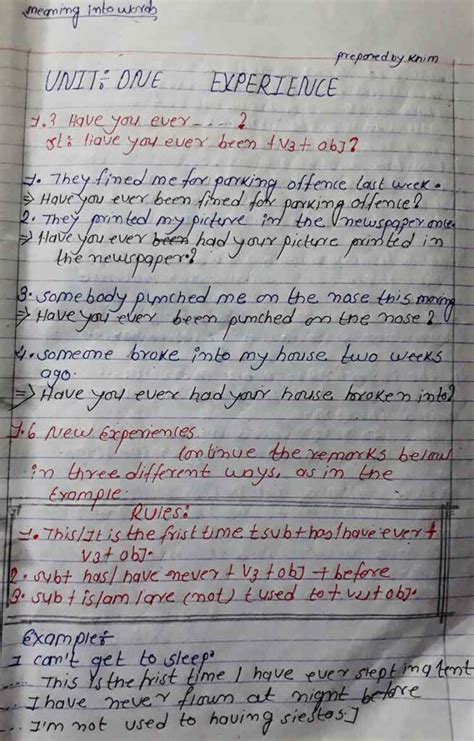 meaning into words
prepared by Knim
UNIT: ONE EXPERIENCE
1.3 Have you ever.....?
st: Have you ever been + V3 + obj?
1. They fined me for parking offence last week.
⇒ Have you ever been fined for parking offence?
2. They printed my picture in the newspaper once.
⇒ Have you ever been had your picture printed in
the newspaper?
3. somebody punched me on the nose this morning
⇒ Have you ever been punched on the nose?
4. someone broke into my house two weeks
ago.
⇒ Have you ever had your house broken into?
1.6 New Experiences
continue the remarks below
in three different ways, as in the
Example:
Rules:
1. This/It is the frist time + sub + has/have ever +
V3 + obj.
2. sub + has/have never + V3 + obj + before
3. sub + is/am/are (not) + used to + v4 + obj.
Example:-
I can't get to sleep.
... This is the frist time I have ever slept in g tent
... I have never flown at night before
... I'm not used to having siestas.]